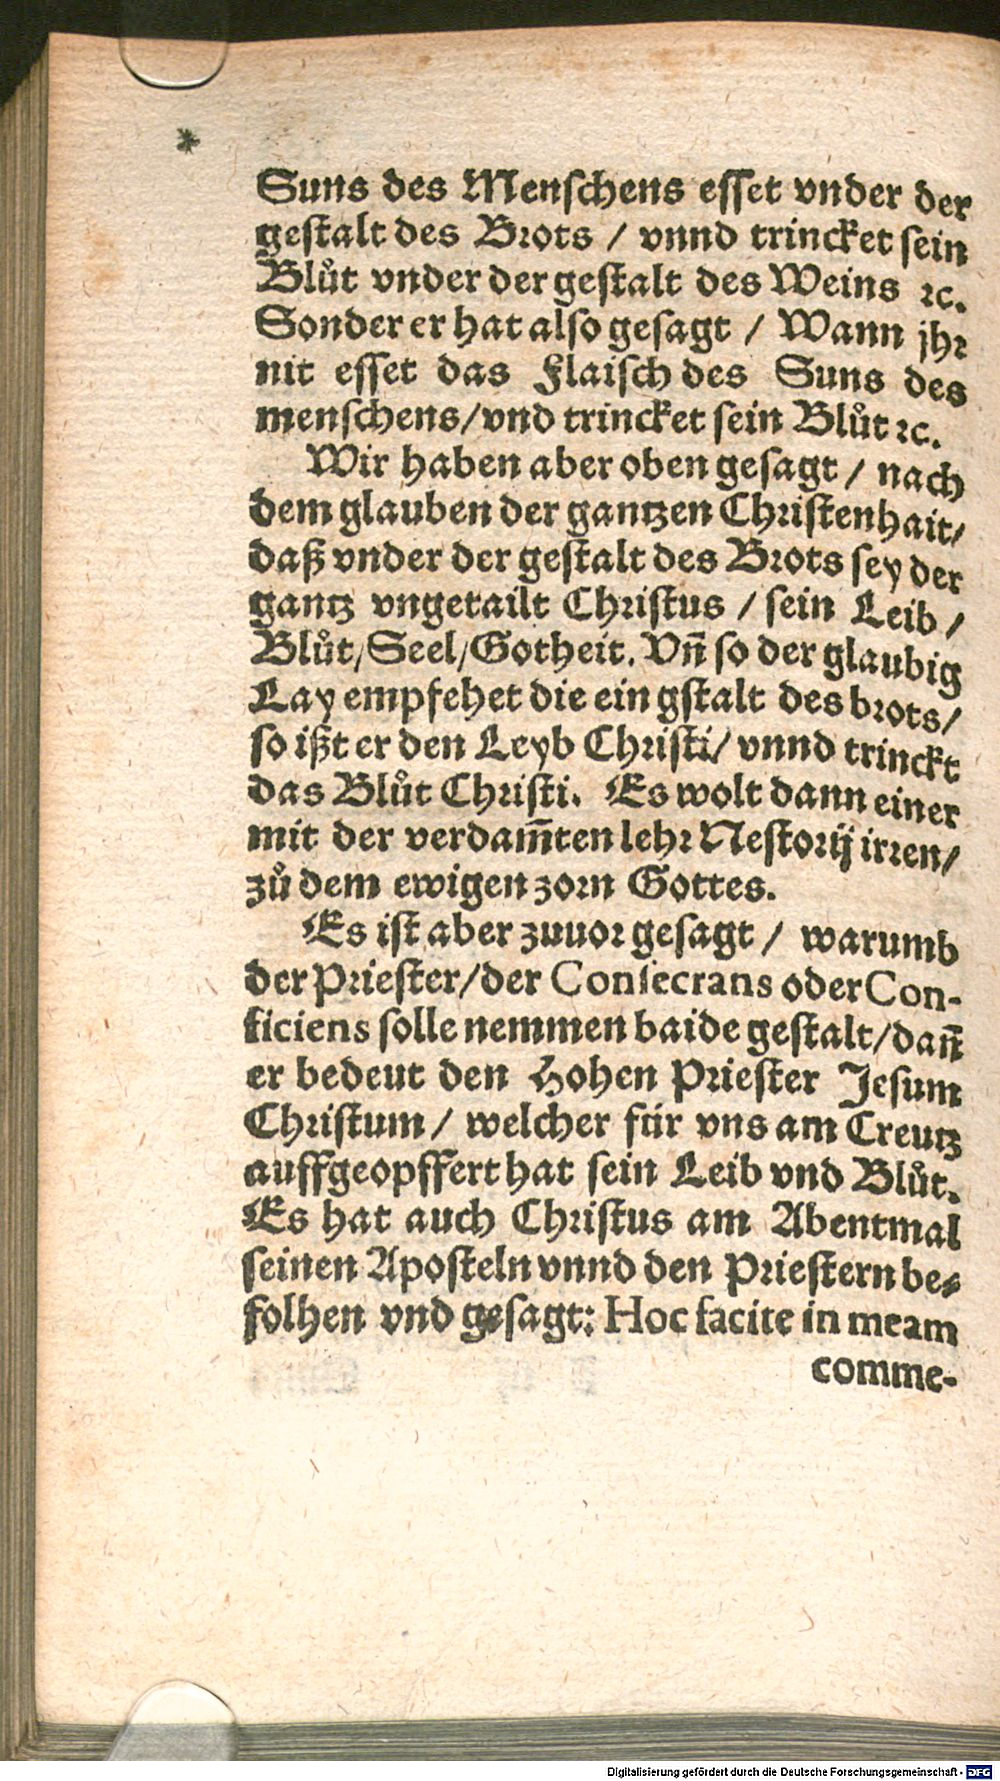 Suns des Menschens esset vnder der
gestalt des Brots / vnnd trincket sein
Blůt vnder der gestalt des Weins ꝛc.
Sonder er hat also gesagt / Wann jhr
nit esset das Flaisch des Suns des
menschens/vnd trincket sein Blůt ꝛc.
Wir haben aber oben gesagt / nach
dem glauben der gantzen Christenhait/
daß vnder der gestalt des Brots sey der
gantz vngetailt Christus / sein Leib /
Blůt/Seel/Gotheit. Vñ so der glaubig
Lay empfehet die ein gstalt des brots/
so ißt er den Leyb Christi/ vnnd trinckt
das Blůt Christi. Es wolt dann einer
mit der verdam̃ten lehr Nestorij irren/
zů dem ewigen zorn Gottes.
Es ist aber zuuor gesagt / warumb
der Priester/der Consecrans oder Con-
ficiens solle nemmen baide gestalt/dañ
er bedeut den Hohen Priester Jesum
Christum / welcher für vns am Creutz
auffgeopffert hat sein Leib vnd Blůt.
Es hat auch Christus am Abentmal
seinen Aposteln vnnd den Priestern be-
folhen vnd gesagt: Hoc facite in meam
comme-
Digitalisierung gefördert durch die Deutsche Forschungsgemeinschaft - DFG